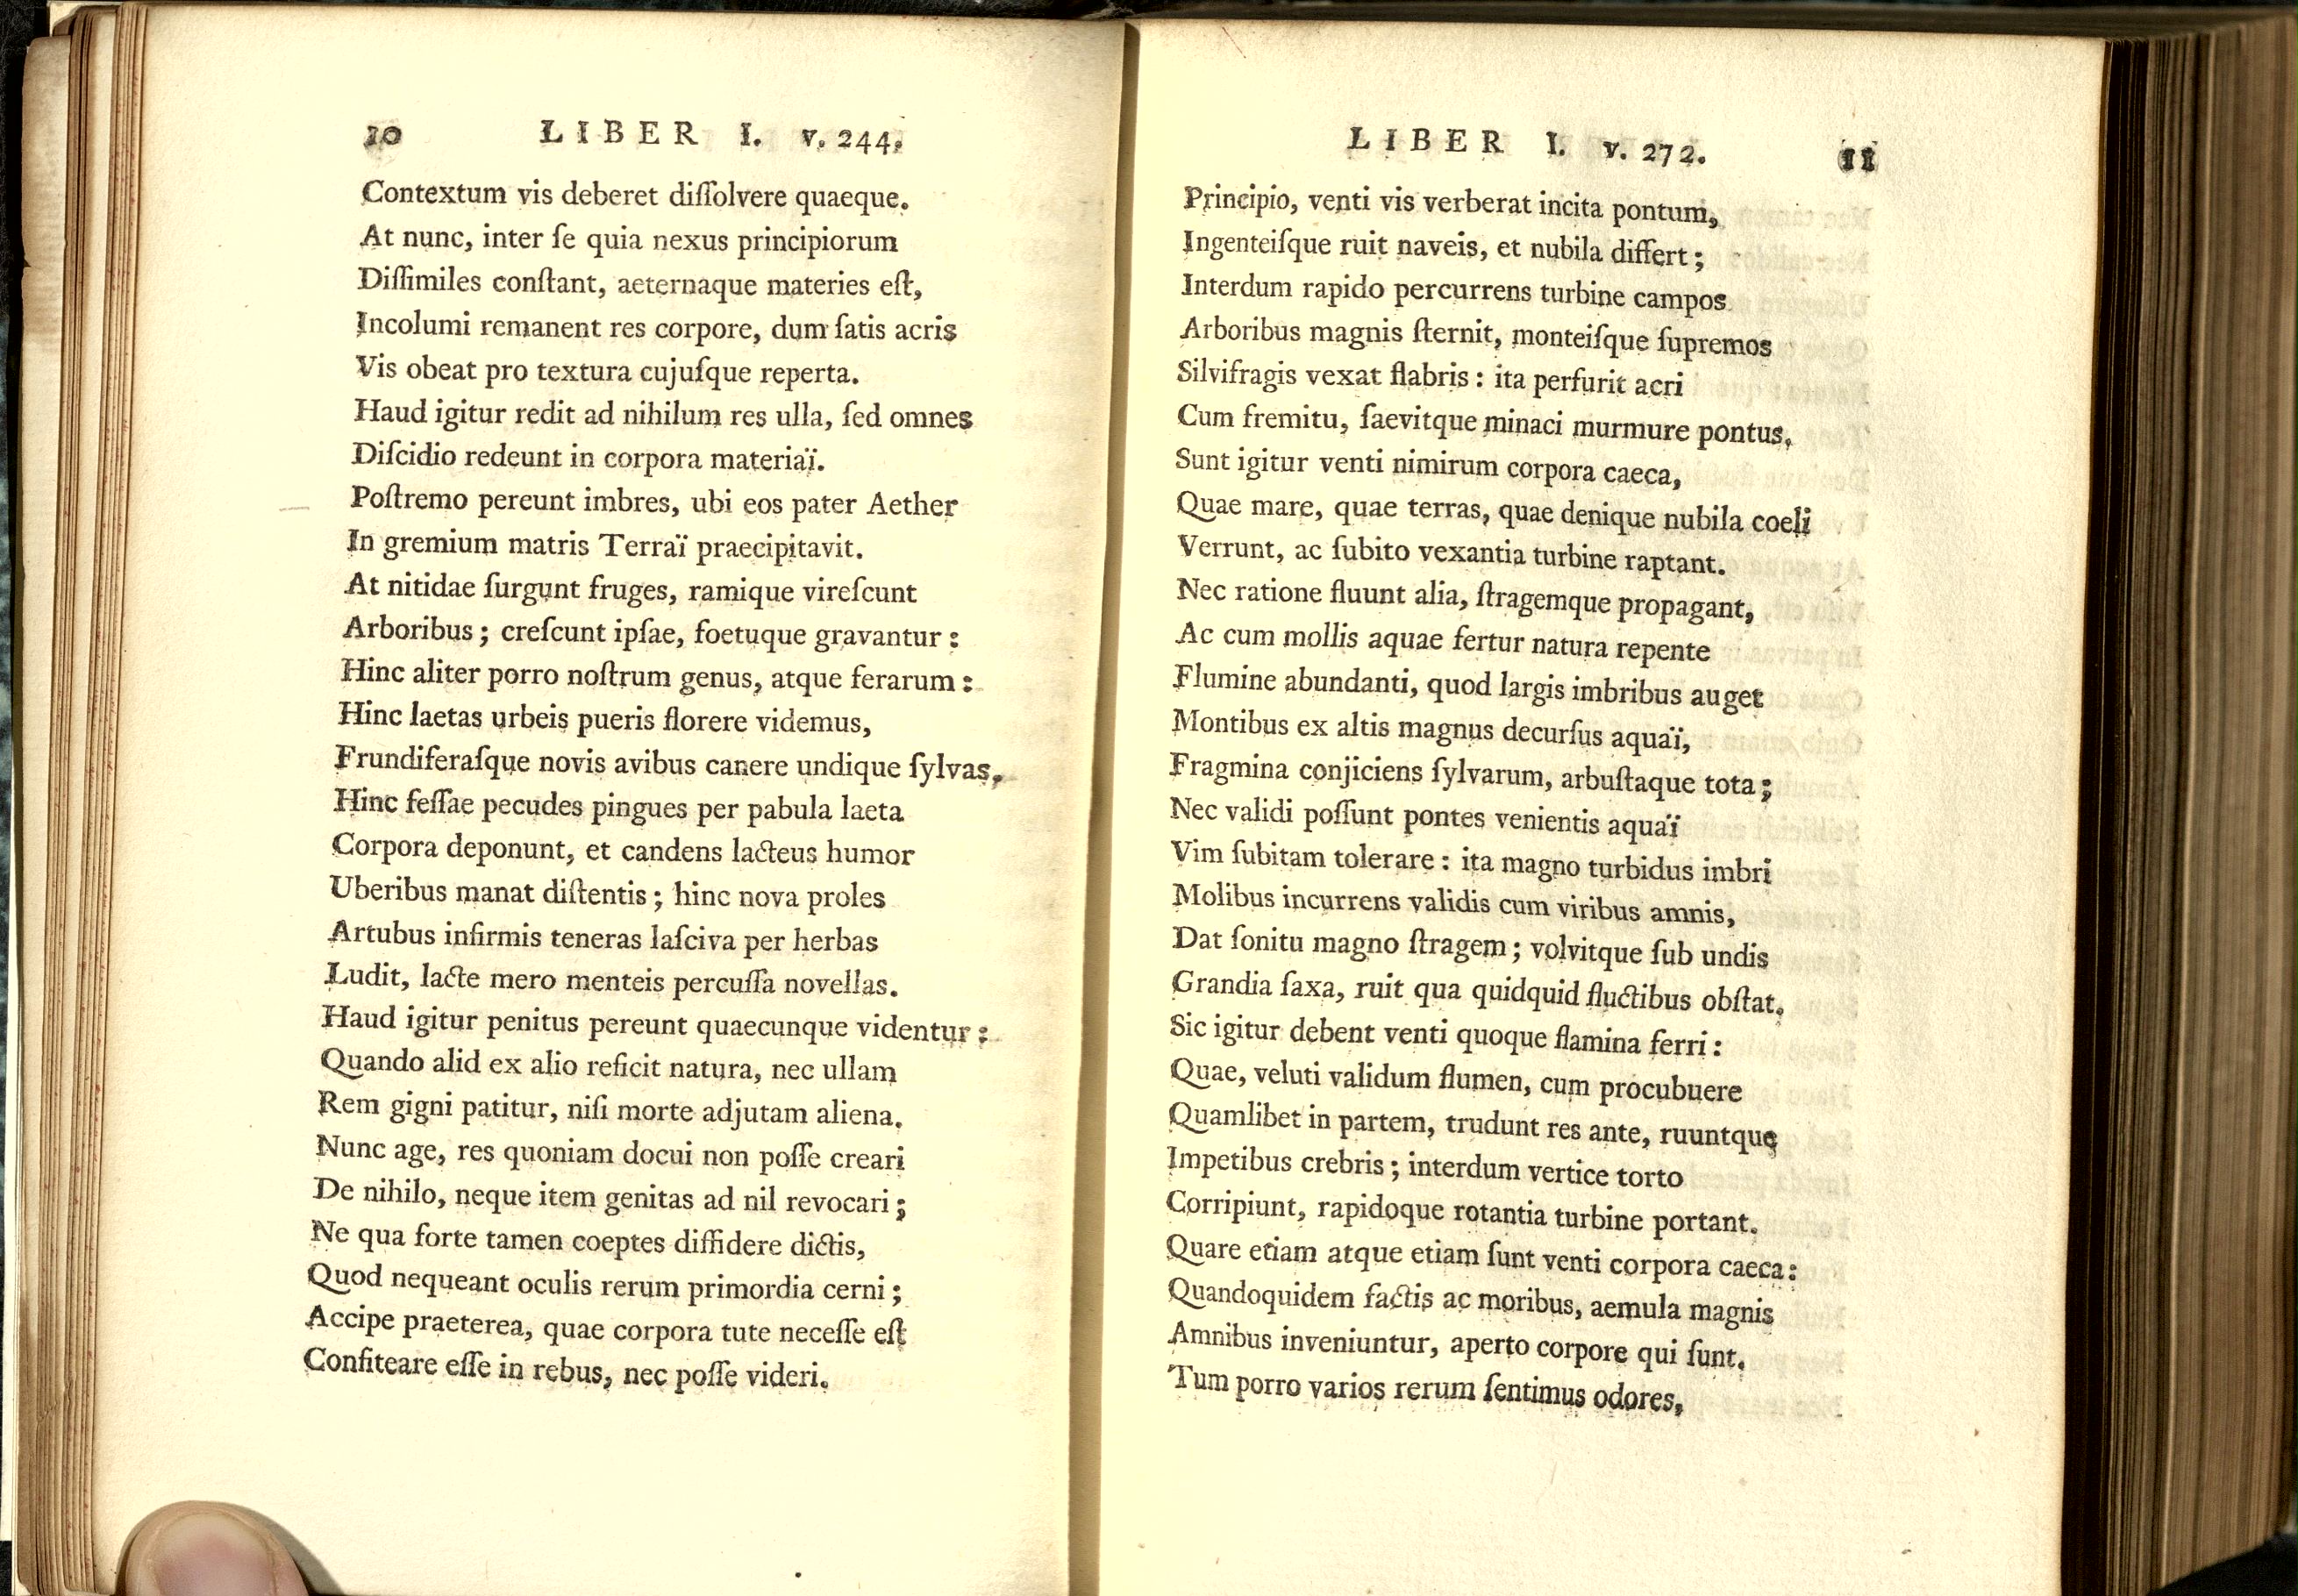 10 LIBER I. v. 244.
Contextum vis deberet diſſolvere quaeque.
At nunc, inter ſe quia nexus principiorum
Diſſimiles conſtant, aeternaque materies eſt,
Incolumi remanent res corpore, dum ſatis acris
Vis obeat pro textura cujuſque reperta.
Haud igitur redit ad nihilum res ulla, ſed omnes
Diſcidio redeunt in corpora materiaï.
Poſtremo pereunt imbres, ubi eos pater Aether
In gremium matris Terraï praecipitavit.
At nitidae ſurgunt fruges, ramique vireſcunt
Arboribus; creſcunt ipſae, foetuque gravantur:
Hinc aliter porro noſtrum genus, atque ferarum:
Hinc laetas urbeis pueris florere videmus,
Frundiferaſque novis avibus canere undique ſylvas,
Hinc feſſae pecudes pingues per pabula laeta
Corpora deponunt, et candens lacteus humor
Uberibus manat diſtentis; hinc nova proles
Artubus infirmis teneras laſciva per herbas
Ludit, lacte mero menteis percuſſa novellas.
Haud igitur penitus pereunt quaecunque videntur:
Quando alid ex alio reficit natura, nec ullam
Rem gigni patitur, niſi morte adjutam aliena.
Nunc age, res quoniam docui non poſſe creari
De nihilo, neque item genitas ad nil revocari;
Ne qua forte tamen coeptes diffidere dictis,
Quod nequeant oculis rerum primordia cerni;
Accipe praeterea, quae corpora tute neceſſe eſt
Confiteare eſſe in rebus, nec poſſe videri.
LIBER I. v. 272. 11
Principio, venti vis verberat incita pontum,
Ingenteiſque ruit naveis, et nubila differt;
Interdum rapido percurrens turbine campos
Arboribus magnis ſternit, monteiſque ſupremos
Silvifragis vexat flabris: ita perfurit acri
Cum fremitu, ſaevitque minaci murmure pontus.
Sunt igitur venti nimirum corpora caeca,
Quae mare, quae terras, quae denique nubila coeli
Verrunt, ac ſubito vexantia turbine raptant.
Nec ratione fluunt alia, ſtragemque propagant,
Ac cum mollis aquae fertur natura repente
Flumine abundanti, quod largis imbribus auget
Montibus ex altis magnus decurſus aquaï,
Fragmina conjiciens ſylvarum, arbuſtaque tota;
Nec validi poſſunt pontes venientis aquaï
Vim ſubitam tolerare: ita magno turbidus imbri
Molibus incurrens validis cum viribus amnis,
Dat ſonitu magno ſtragem; volvitque ſub undis
Grandia ſaxa, ruit qua quidquid fluctibus obſtat.
Sic igitur debent venti quoque flamina ferri:
Quae, veluti validum flumen, cum procubuere
Quamlibet in partem, trudunt res ante, ruuntque
Impetibus crebris; interdum vertice torto
Corripiunt, rapidoque rotantia turbine portant.
Quare etiam atque etiam ſunt venti corpora caeca:
Quandoquidem factis ac moribus, aemula magnis
Amnibus inveniuntur, aperto corpore qui ſunt.
Tum porro varios rerum ſentimus odores,